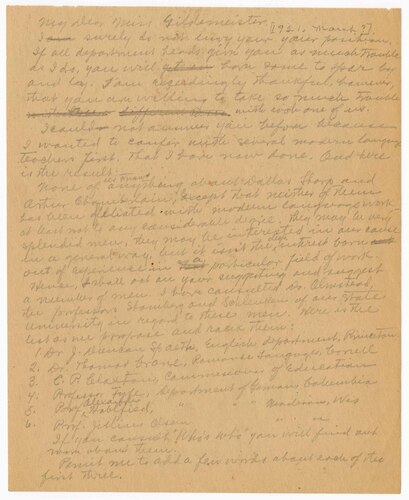 My dear Miss Gildemeister, [1921, March ?]
I surely do not envy your position,
If all department heads give you as much trouble
as I do, you will have some to spare by
and by. I am exceedingly thankful, however,
that you are willing to take so much trouble
with each one of us.
I could not answer you before because
I wanted to confer with several modern language
teachers first. That I have now done. And here
is the result.
None of us knows anything about Dallas Sharp and
Arthur Chamberlain, except that neither of them
has been affiliated with modern language work,
at least not to any considerable degree. They may be very
splendid men, they may be interested in our cause
in a general way, but it isn't the deep interest born
out of experience in a particular field of work.
Hence, I shall act on your suggestion and suggest
a number of men. I have consulted Dr. Olmstead,
the professors and Schlenker of our State
University in regard to these men. Here is the
list as we propose and rate them:
1. Dr. J. Duncan Spaeth, English department, Princeton
2. Dr. Thomas Crane, Romance Languages, Cornell
3. C. P. Claxton, Commissioner of Education
4. Professor Department of Columbia
5. Prof. Alexander Hohlfeld, " " Madison, Wis
6. Prof. Julius Olson " " "
If you consult "Who's Who" you will find out
more about them.
Permit me to add a few words about each of the
first three.